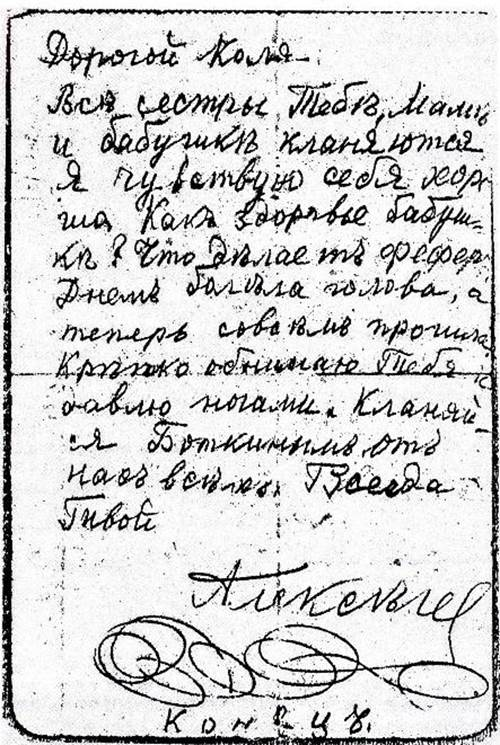 Дорогой Коля.
Всѣ сестры Тебѣ, Мамѣ
и бабушкѣ кланяются
Я чувствую себя хор-
шо. Какъ здоровье бабуш-
кѣ? Что дѣлаетъ Фефер.
Днемъ болѣла голова, а
теперь совсѣмъ прошла.
Крѣпко обнимаю Тебя и
давлю ногами. Кланяй-
ся Боткинымъ отъ
насъ всѣхъ. Всегда
Твой
Алексѣй
Конецъ.